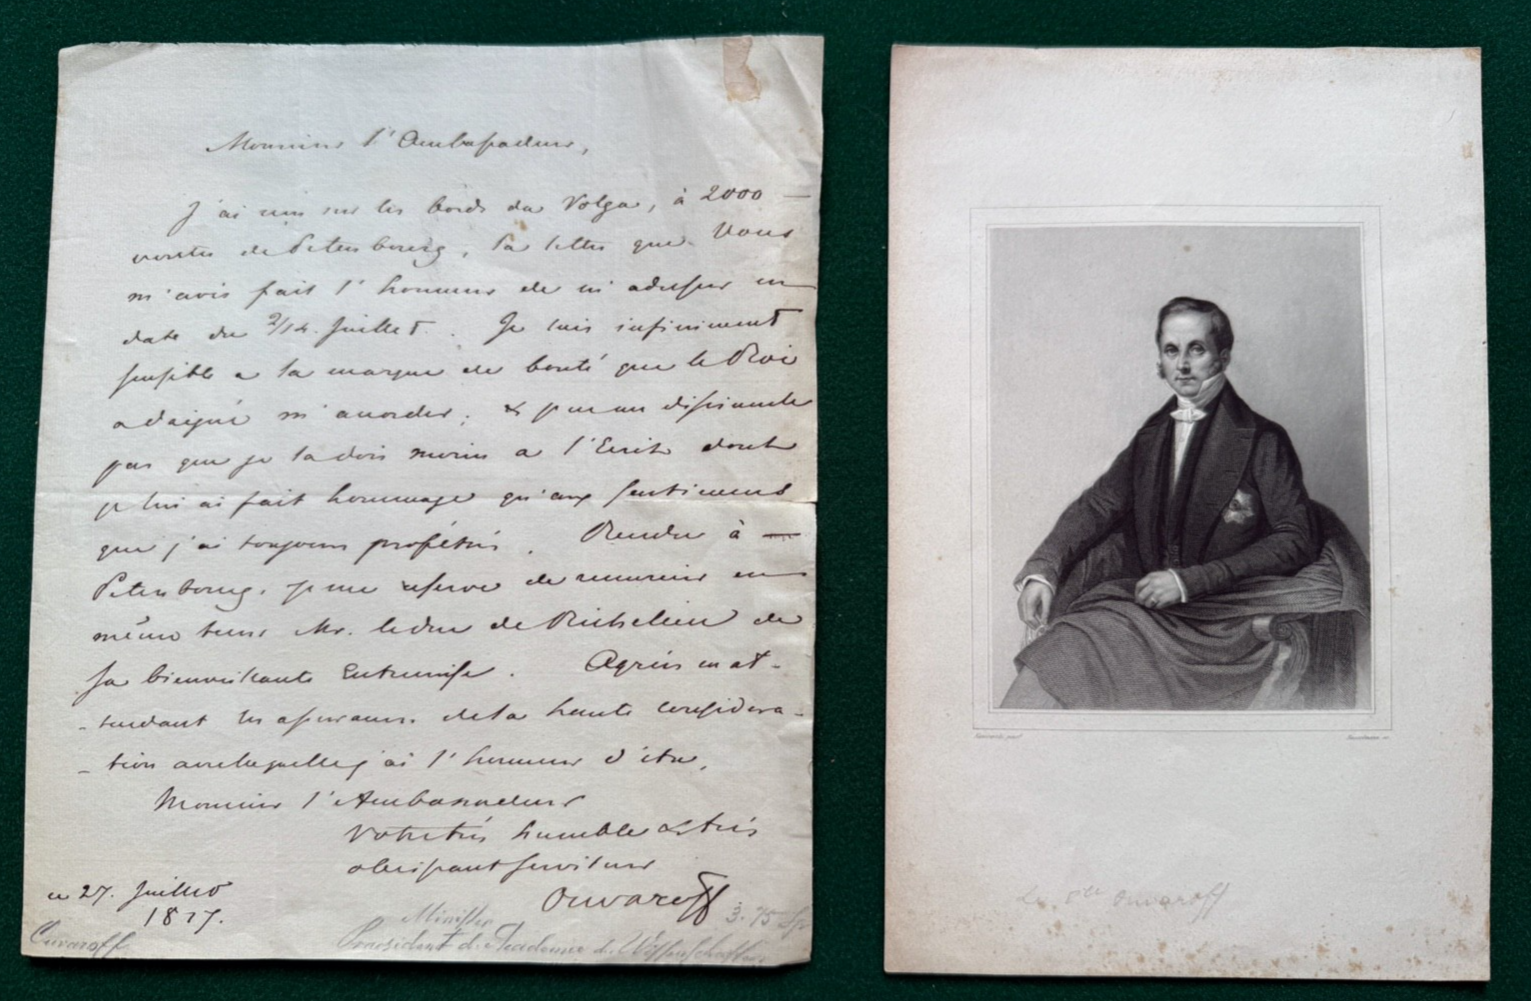 Monsieur l'Ambassadeur,
J'ai reçu sur les bords du Volga, à 2000 —
verstes de Petersbourg, la lettre que Vous
m'avés fait l'honneur de m'adresser en
date du 2/14. Juillet. Je suis infiniment
sensible a la marque de bonté que le Roi
a daigné m'accorder; & je ne me dissimule
pas que je la dois moins a l'Ecrit dont
je lui ai fait hommage qu'aux sentimens
que j'ai toujours professés. Rendu à —
Petersbourg, je me reserve de remercier en
même tems Mr. le duc de Richelieu de
sa bienveillante Entremise. Agréés en at-
-tendant les assurances de la haute considera-
-tion avec laquelle j'ai l'honneur d'être,
Monsieur l'Ambassadeur
Votre très humble & très
obeissant serviteur
Ouvaroff
ce 27. Juillet
1817.
3. 75
Minister
Ouvaroff
Praesident d. Academie d. Wissenschaften
Le Cte Ouvaroff